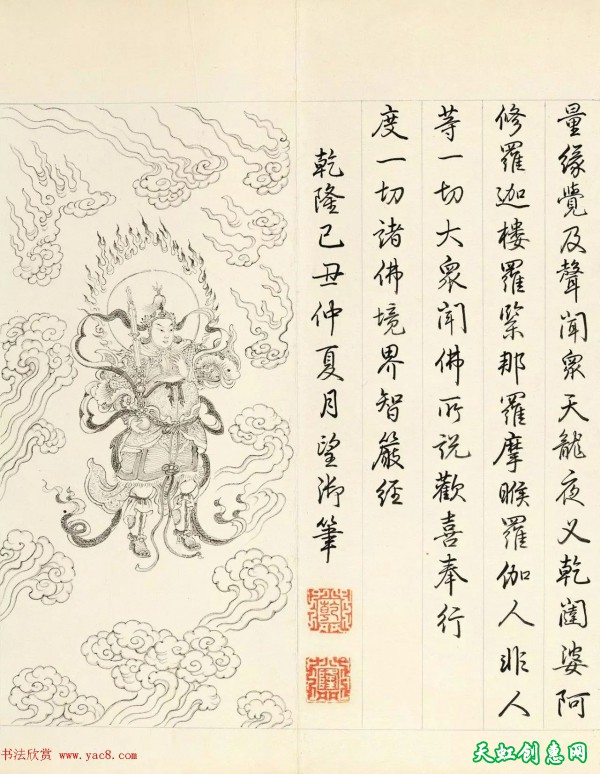 量緣覺及聲聞眾天龍夜叉乾闥婆阿
修羅迦樓羅緊那羅摩睺羅伽人非人
等一切大眾聞佛所說歡喜奉行
度一切諸佛境界智嚴經
乾隆己丑仲夏月望御筆
书法欣赏 www.yac8.com
天虹创惠网